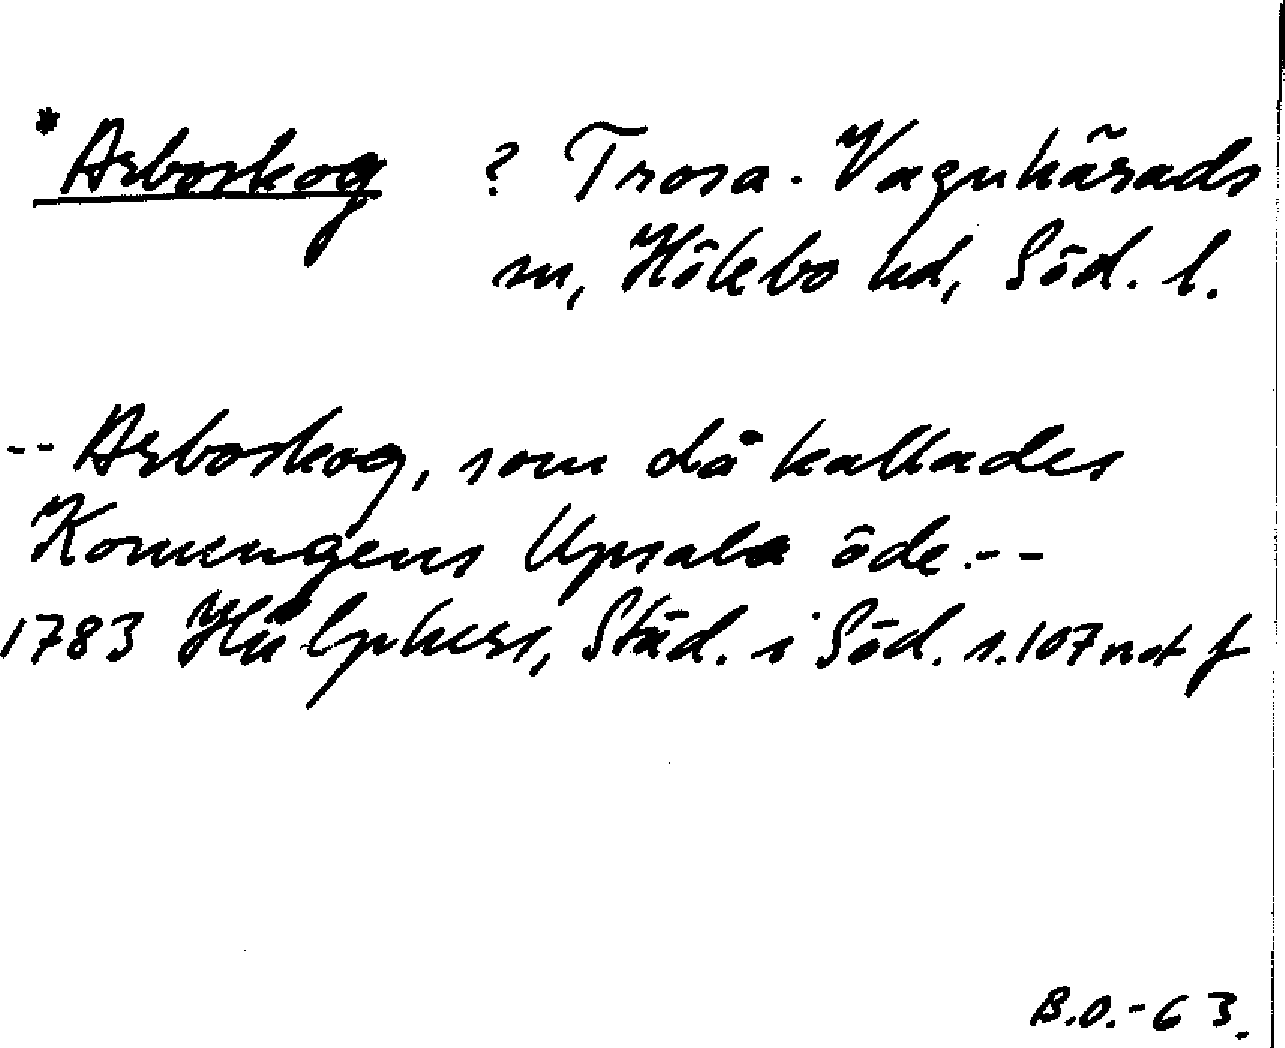 * Arboskog ? Trosa-Vagnhärads
sn, Hölebo hd, Söd. l.
-- Arboskog, som då kallades
Konungens Upsala öde.--
1783 Hülphers, Städ. i Söd. s.107 not f
B.O.-63.